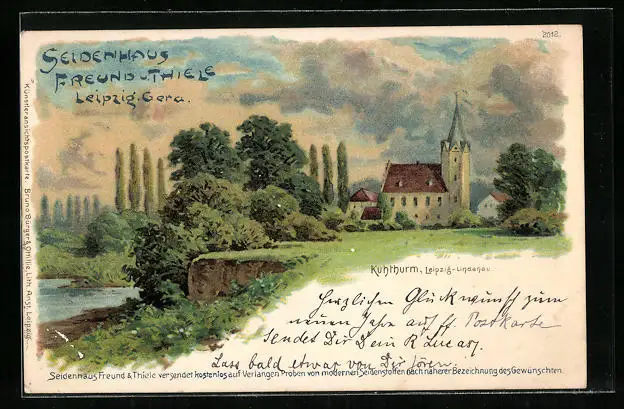 2012.
SEIDENHAUS
FREUND u. THIELE
Leipzig-Gera.
Künstleransichtspostkarte Bruno Bürger & Ottilie, Lith. Anst. Leipzig.
Kuhthurm, Leipzig-Lindenau.
Herzlichen Glückwunsch zum
neuen Jahre auf ff. Postkarte
sendet Dir Dein R
Lass bald etwas von Dir hören.
Seidenhaus Freund & Thiele versendet kostenlos auf Verlangen Proben von modernen Seidenstoffen nach näherer Bezeichnung des Gewünschten.